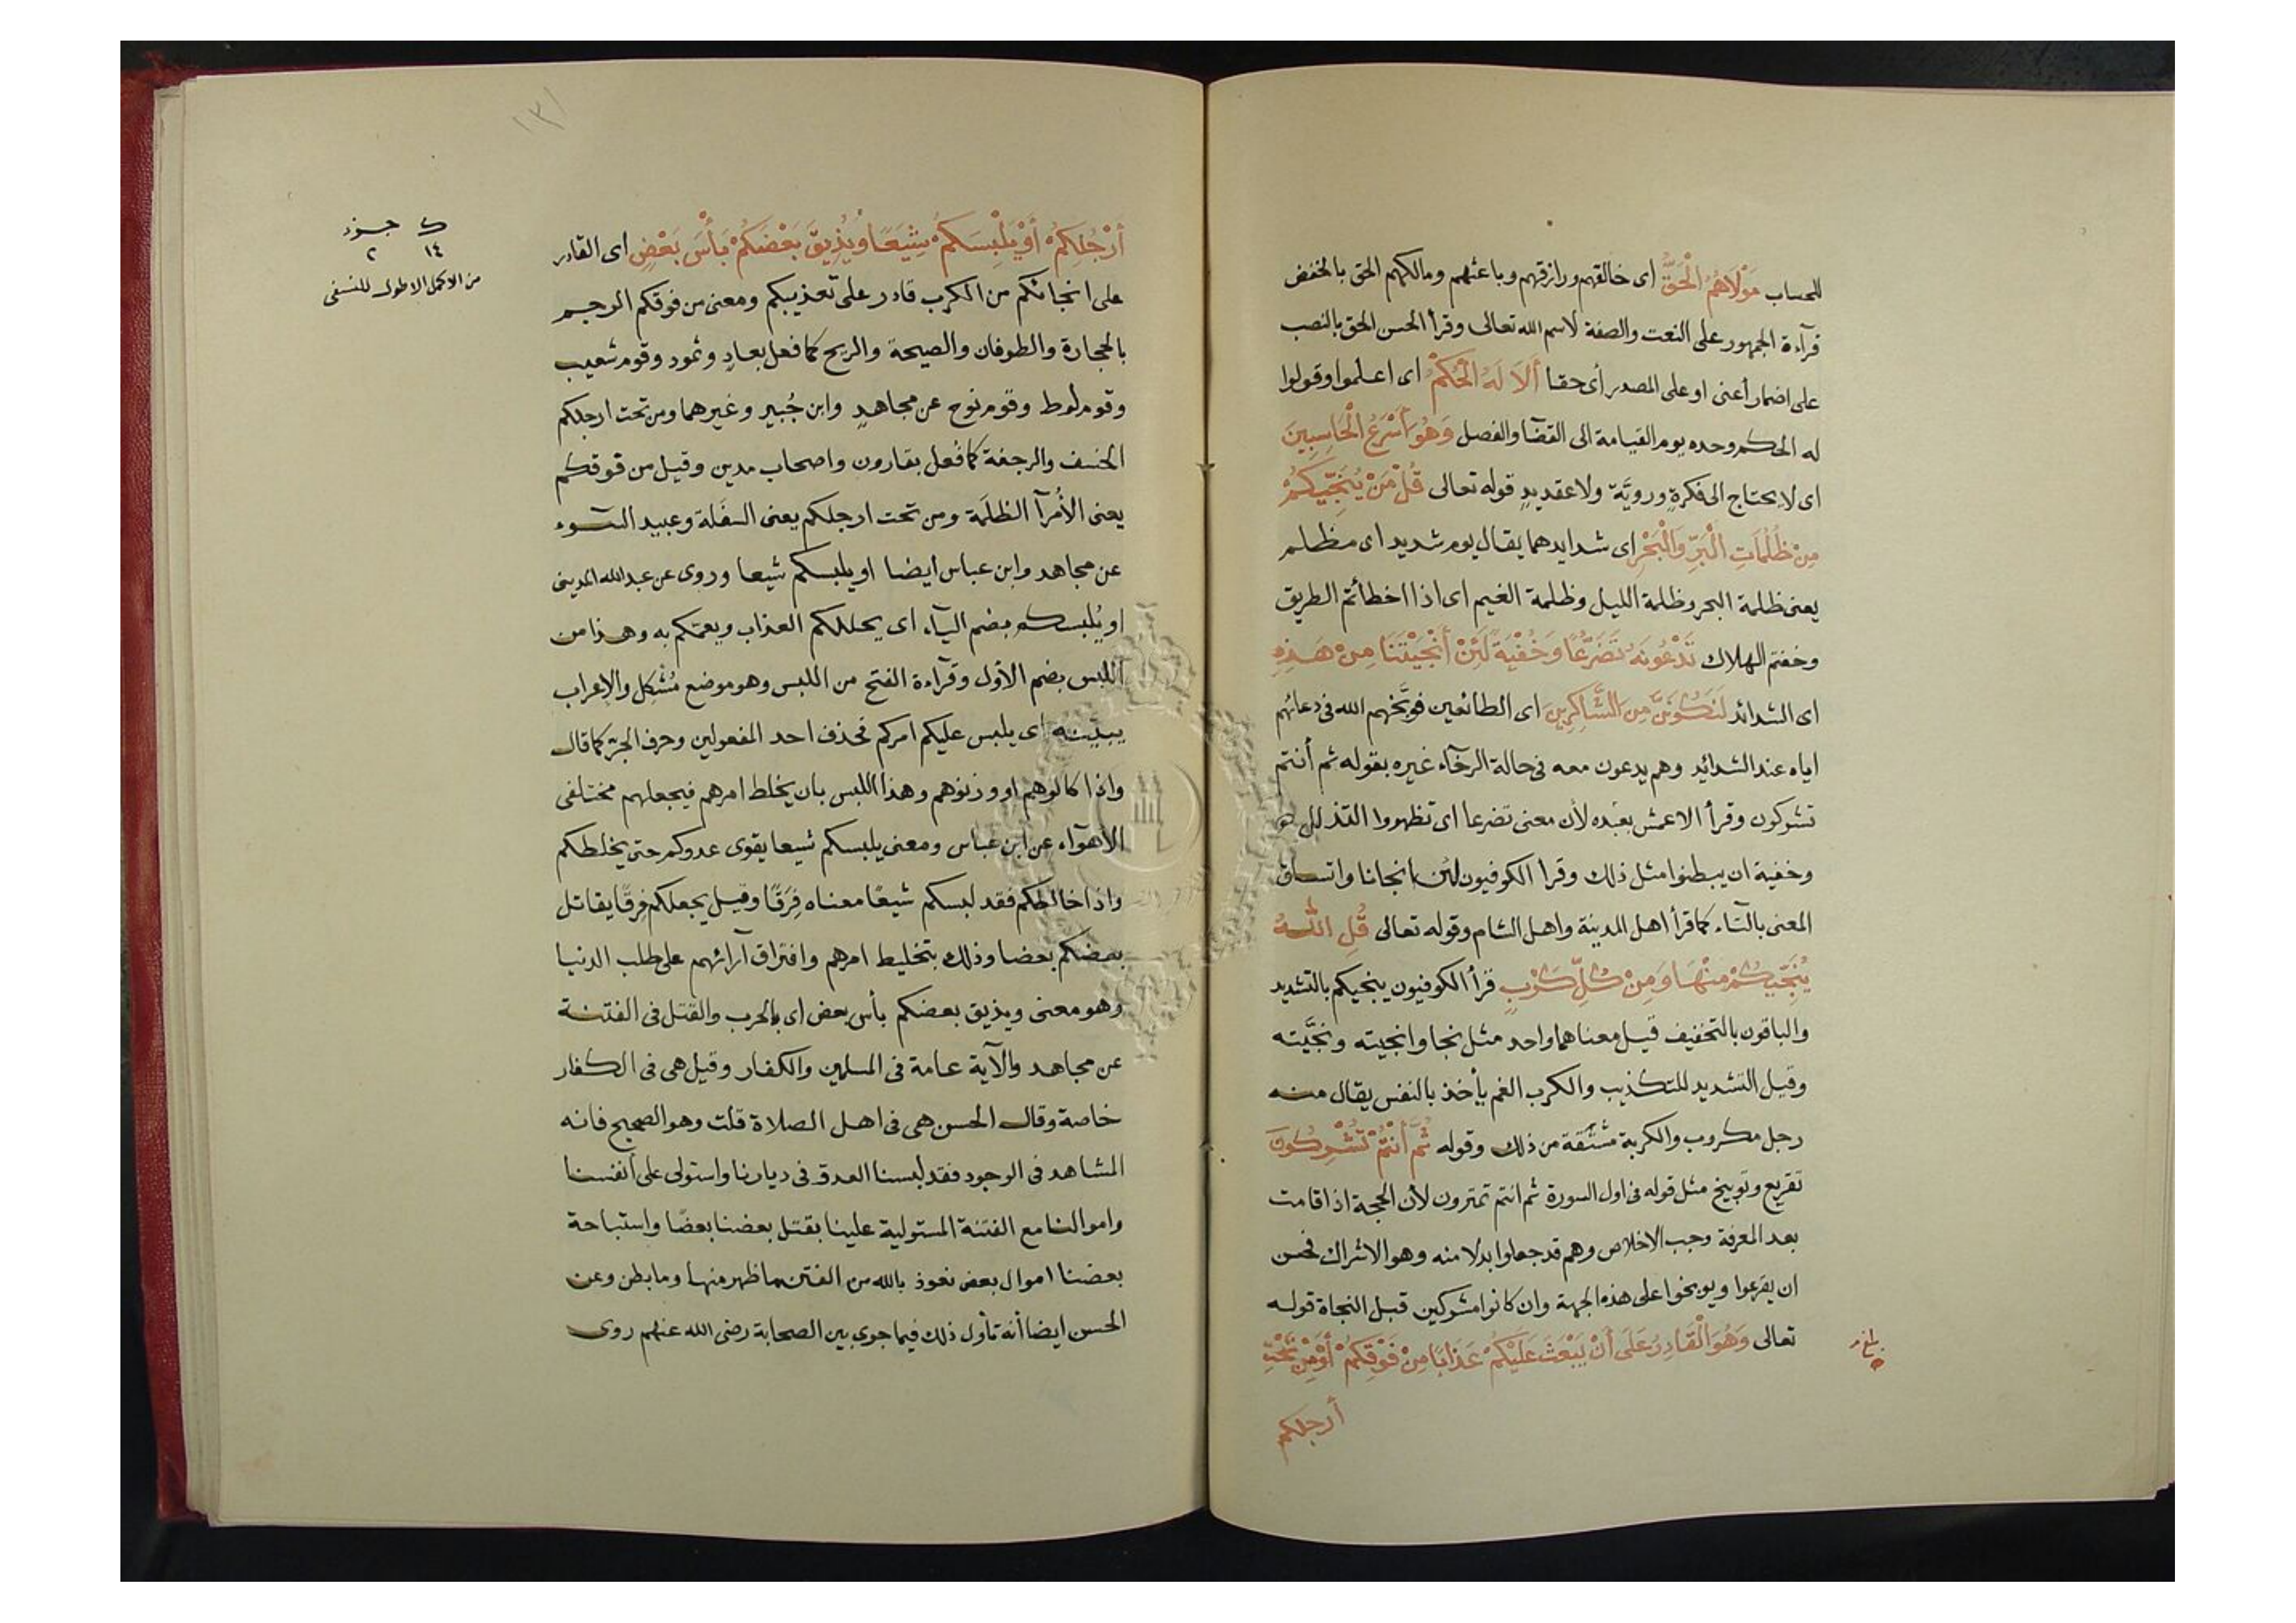 للحساب مَوْلَاهُمُ الْحَقُّ اى خالقهم ورازقهم وباعثهم ومالكهم الحق بالخفض
قرآءة الجمهور على النعت والصفة لاسم الله تعالى وقرأ الحسن الحق بالنصب
على اضمار أعنى او على المصدر أى حقا أَلَا لَهُ الْحُكْمُ اى اعلموا وقولوا
له الحكم وحده يوم القيامة اى القضآ والفصل وَهُوَ أَسْرَعُ الْحَاسِبِينَ
اى لا يحتاج الى فكرةٍ ورويَّة ولا عقد يدٍ قوله تعالى قُلْ مَنْ يُنَجِّيكُمْ
مِنْ ظُلُمَاتِ الْبَرِّ وَالْبَحْرِ اى شدايدهما يقال يوم شديد اى مظلم
يعنى ظلمة البحر وظلمة الليل وظلمة الغيم اى اذا اخطأتم الطريق
وخفتم الهلاك تَدْعُونَهُ تَضَرُّعًا وَخُفْيَةً لَئِنْ أَنْجَيْتَنَا مِنْ هَذِهِ
اى الشدائد لَنَكُونَنَّ مِنَ الشَّاكِرِينَ اى الطائعين فوبَّخهم الله فى دعائهم
اياه عند الشدائد وهم يدعون معه فى حالة الرخآء غيره بقوله ثم أنتم
تشركون وقرأ الاعمش بعده لأن معنى تضرعا اى تظهروا التذلل
وخفية ان يبطنوا مثل ذلك وقرا الكوفيون لئن انجانا واتساق
المعنى بالتاء كما قرأ اهل المدينة واهل الشام وقوله تعالى قُلِ اللهُ
يُنَجِّيكُمْ مِنْهَا وَمِنْ كُلِّ كَرْبٍ قرأ الكوفيون ينجيكم بالتشديد
والباقون بالتخفيف قيل معناهما واحد مثل نجا وانجيته ونجَّيته
وقيل التشديد للتكذيب والكرب الغم يأخذ بالنفس يقال منه
رجل مكروب والكربة مشتقة من ذلك وقوله ثُمَّ أَنْتُمْ تُشْرِكُونَ
تقريع وتوبيخ مثل قوله فى اول السورة ثم انتم تمترون لأن الحجة اذا قامت
بعد المعرفة وجب الاخلاص وهم قد جعلوا بدلا منه وهو الاشراك فحسن
ان يقرعوا ويوبخوا على هذه الجهة وان كانوا مشركين قبل النجاة قوله
تعالى وَهُوَ الْقَادِرُ عَلَى أَنْ يَبْعَثَ عَلَيْكُمْ عَذَابًا مِنْ فَوْقِكُمْ أَوْ مِنْ تَحْتِ
أرجلكم
١٣١
أَرْجُلِكُمْ أَوْ يَلْبِسَكُمْ شِيَعًا وَيُذِيقَ بَعْضَكُمْ بَأْسَ بَعْضٍ اى القادر
على انجائكم من الكرب قادر على تعذيبكم ومعنى من فوقكم الرجم
بالحجارة والطوفان والصيحة والريح كما فعل بعادٍ وثمود وقوم شعيب
وقوم لوط وقوم نوح عن مجاهدٍ وابن جُبير وغيرهما ومن تحت ارجلكم
الخسف والرجفة كما فعل بقارون واصحاب مدين وقيل من فوقكم
يعنى الأُمرآ الظلَمة ومن تحت ارجلكم يعنى السفَلة وعبيد السوء
عن مجاهد وابن عباس ايضا او يلبسكم شيعا وروى عن عبد الله المدينى
او يُلبسكم بضم اليآء اى يجللكم العذاب ويعمّكم به وهذا من
اللبس بضم الأول وقرآءة الفتح من اللبس وهو موضع مُشكِل والإعراب
يبيّنه اى يلبس عليكم امركم فحذف احد المفعولين وحرف الجرّ كما قال
واذا كالوهم او وزنوهم وهذا اللبس بان يخلط امرهم فيجعلهم مختلفى
الأهوآء عن ابن عباس ومعنى يلبسكم شيعا يقوى عدوكم حتى يخلطكم
واذا خالطكم فقد لبسكم شيعًا معناه فِرَقًا وقيل يجعلكم فرقًا يقاتل
بعضكم بعضا وذلك بتخليط امرهم وافتراق آرائهم على طلب الدنيا
وهو معنى ويذيق بعضكم بأس بعض اى بالحرب والقتل فى الفتنة
عن مجاهد والآية عامة فى المسلمين والكفار وقيل هى فى الكفار
خاصة وقال الحسن هى فى اهل الصلاة قلت وهو الصحيح فانه
المشاهد فى الوجود فقد لبسنا العدو فى ديارنا واستولى على أنفسنا
واموالنا مع الفتنة المستولية علينا بقتل بعضنا بعضًا واستباحة
بعضنا اموال بعض نعوذ بالله من الفتن ما ظهر منها وما بطن وعن
الحسن ايضا أنه تأول ذلك فيما جرى بين الصحابة رضى الله عنهم روى
ك جزء
١٤ ٢
من الاكمل الاطول للنسفى